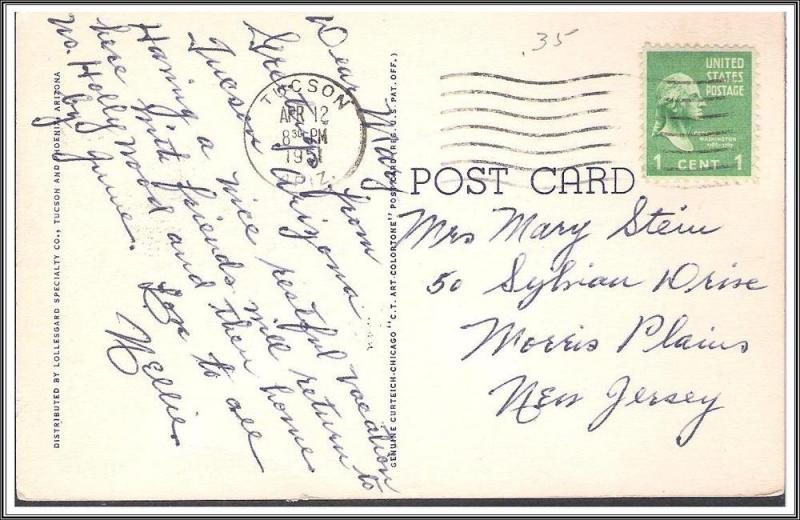 Dear Mary
Greetings from
Tucson Arizona
Having a nice restful vacation
with friends will return to
here and then home
No. Hollywood
by June. Love to all
Nellie.
DISTRIBUTED BY LOLLESGARD SPECIALTY CO., TUCSON AND PHOENIX, ARIZONA
GENUINE CURTEICH-CHICAGO "C.T. ART-COLORTONE" POST CARD (REG. U.S. PAT. OFF.)
.35
TUCSON
APR 12
8 30 PM
1951
ARIZ.
UNITED
STATES
POSTAGE
WASHINGTON
1 CENT 1
POST CARD
Mrs Mary Stein
50 Sylvian Drive
Morris Plains
New Jersey